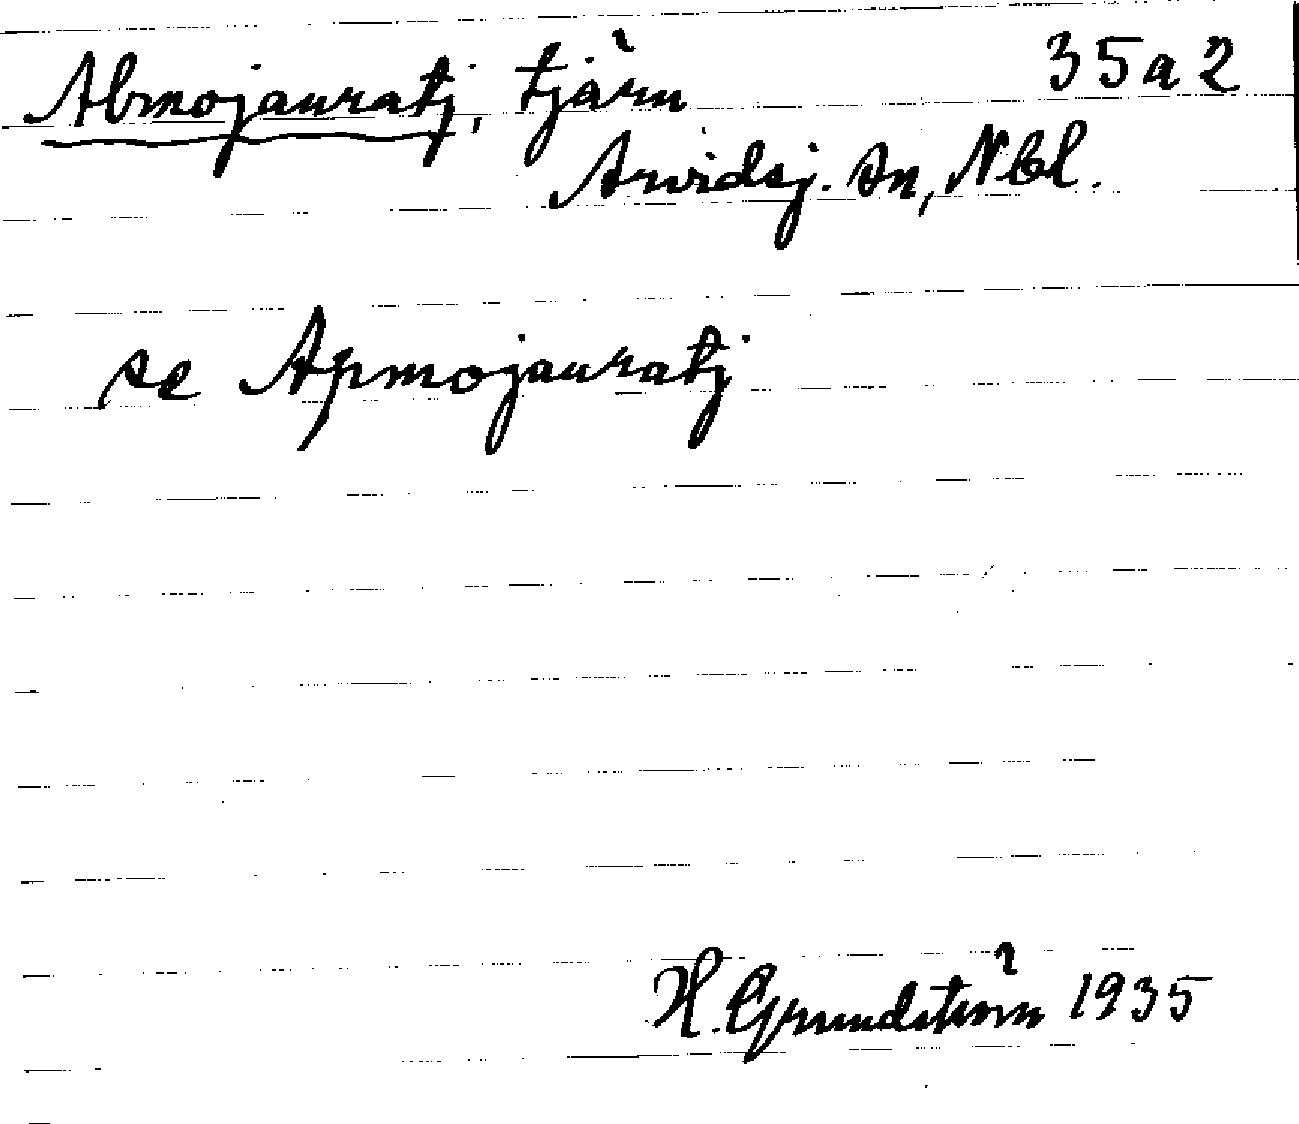 Abmojauratj, tjärn 35a2
Arvidsj. sn, Nbl.
se Apmojauratj
H. Grundström 1935